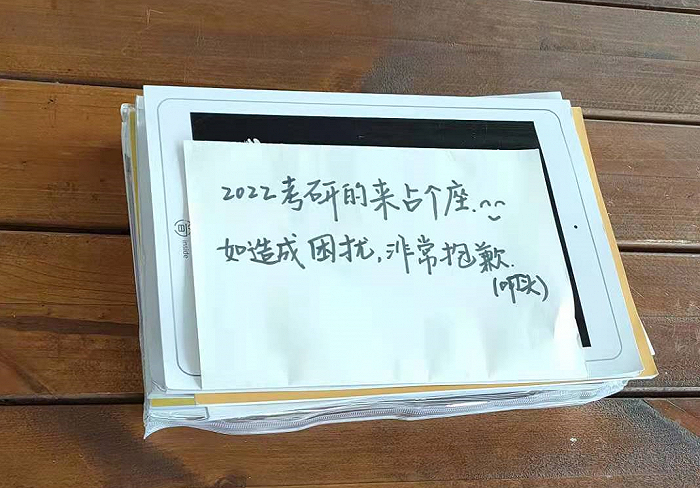 2022考研的来占个座.^^
如造成困扰,非常抱歉.
(叩头)
inside